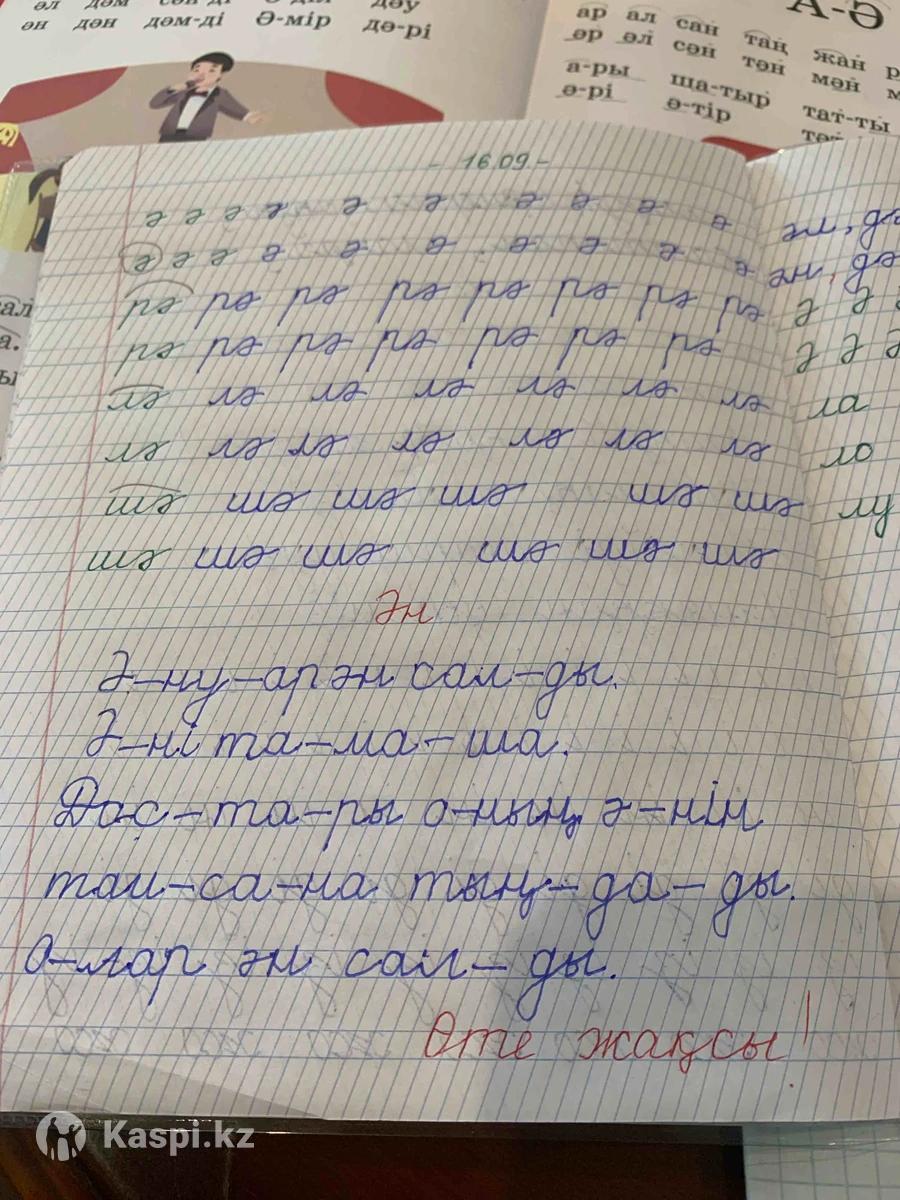 дәм
дәу
ән дән дәм-ді Ә-мір дә-рі
А-Ә
ар ал сан таң жан
әр әл сән тән мән
а-ры ша-тыр тат-ты
ә-рі ә-тір
- 16.09 -
ә ә ә ә ә ә ә ә ә ә әл,
ә ә ә ә ә ә ә ә ә ә ән,
рә рә рә рә рә рә рә рә ә ә
рә рә рә рә рә рә рә ә ә ә
лә лә лә лә лә лә лә ла
лә лә лә лә лә лә лә ло
шә шә шә шә шә шә лу
шә шә шә шә шә шә
Ән
Ә-ну-ар ән сал-ды.
Ә-ні та-ма-ша.
Дос-та-ры о-ның ә-нін
там-са-на тың-да-ды.
О-лар ән сал-ды.
Өте жақсы!
Kaspi.kz